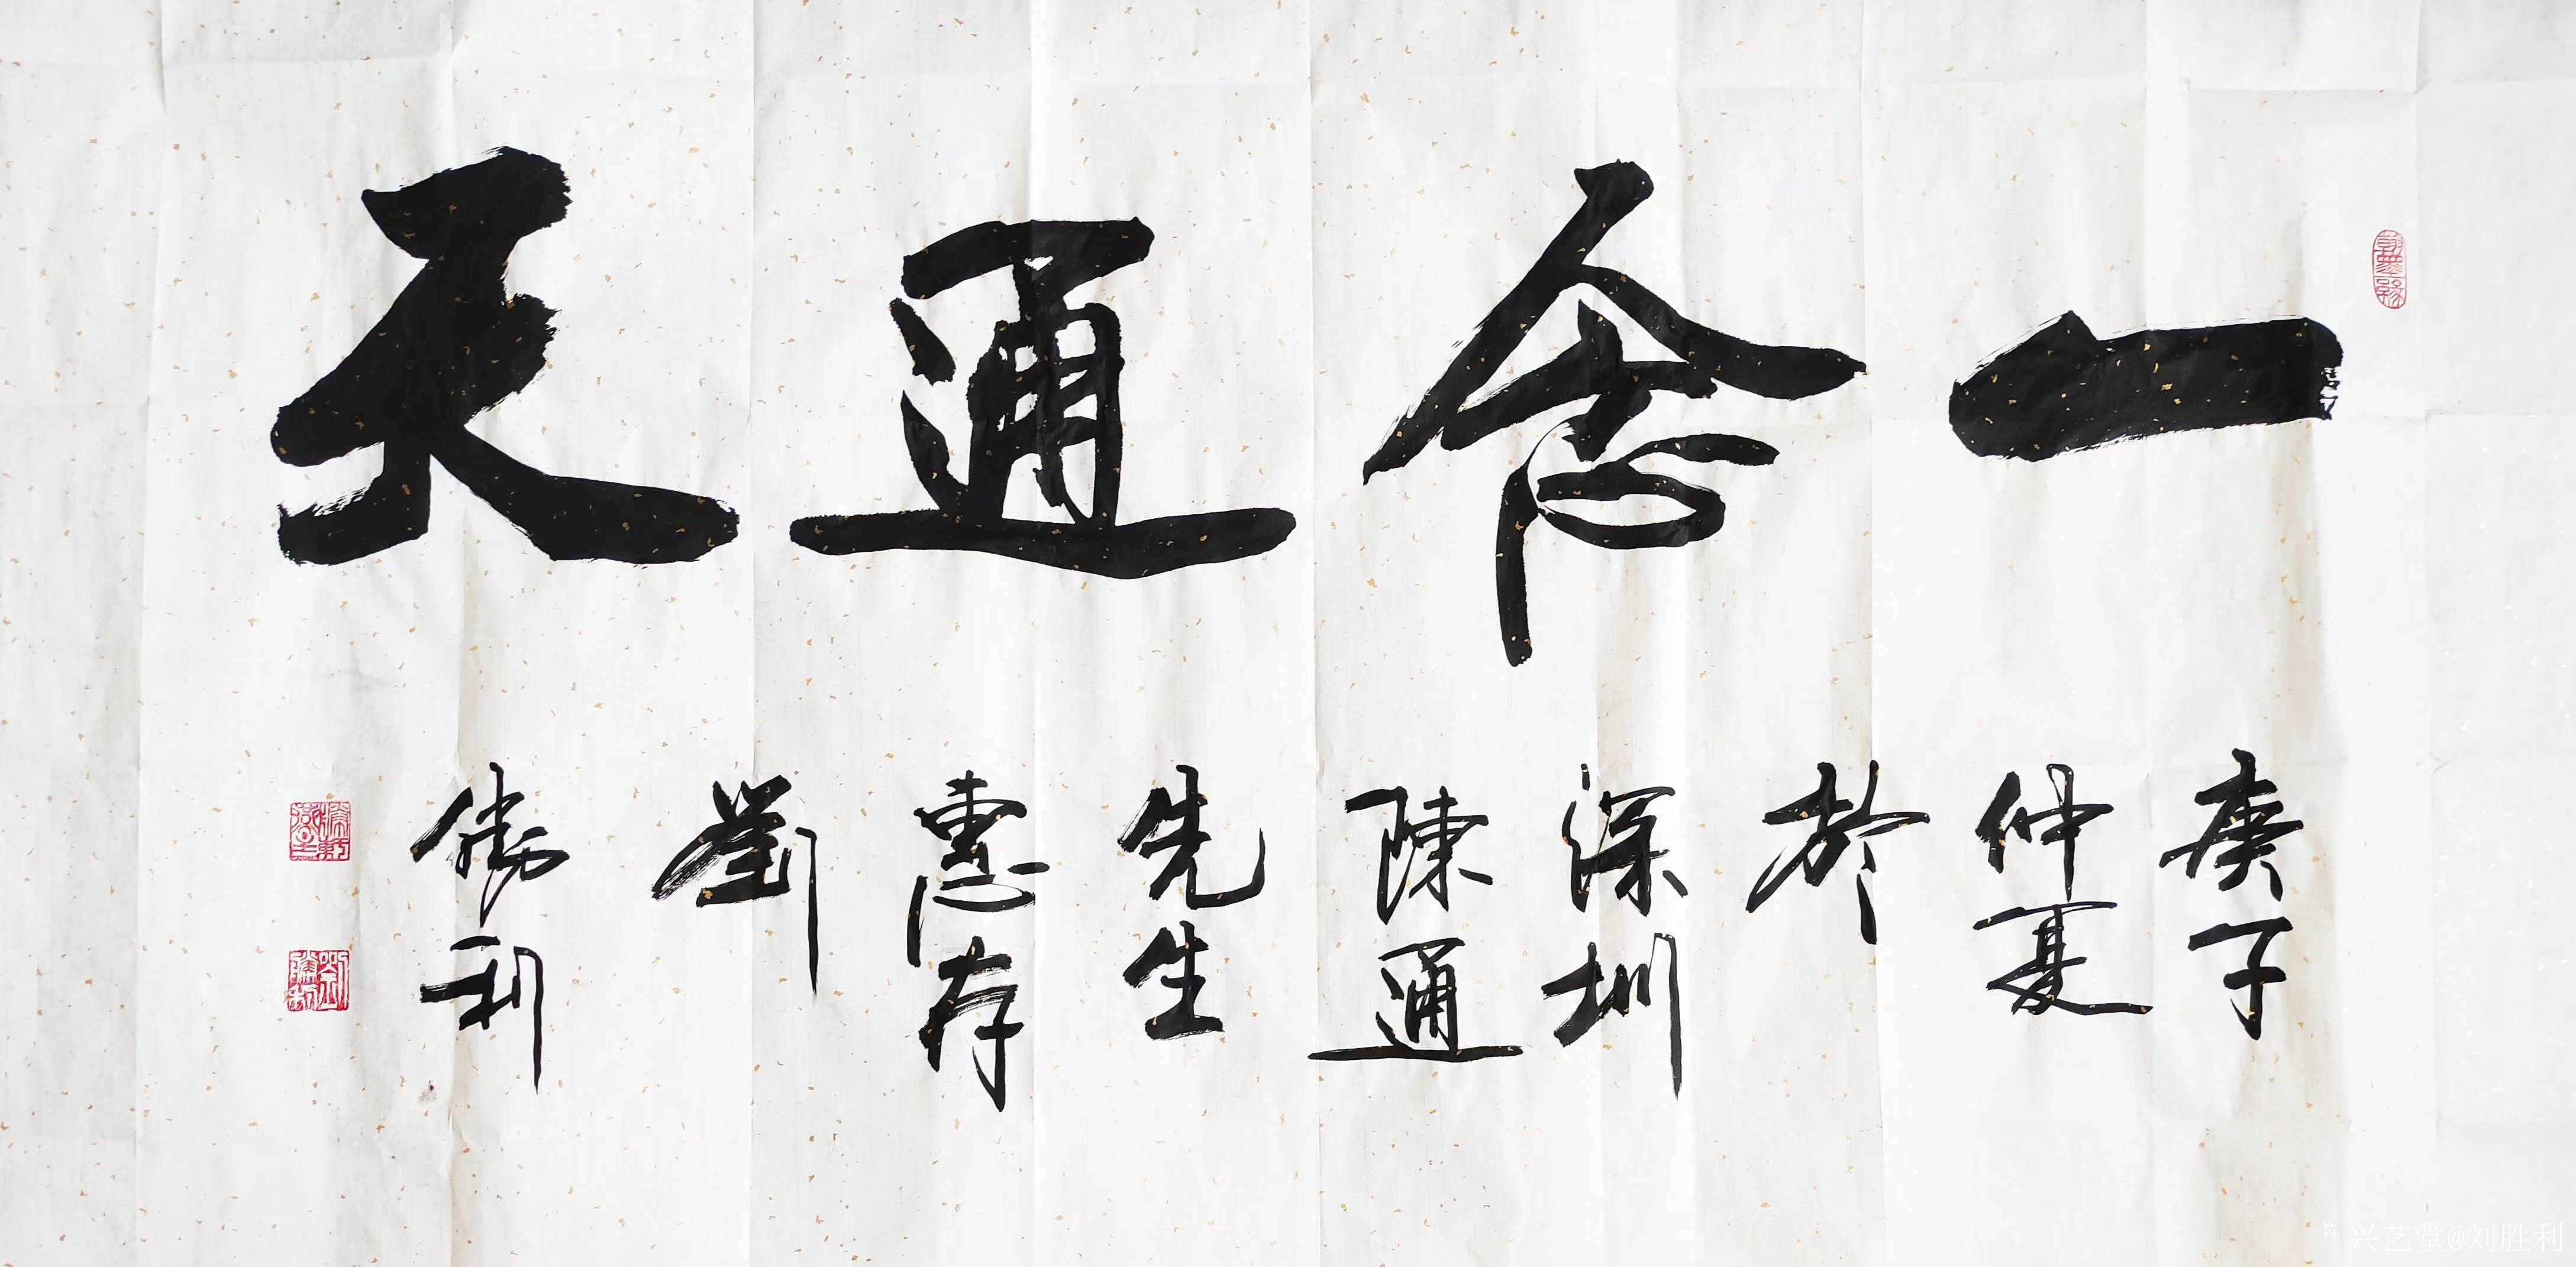 一念通天
庚子
仲夏
於
深圳
陳通
先生
惠存
劉
勝利
劉勝利
兴艺堂@刘胜利